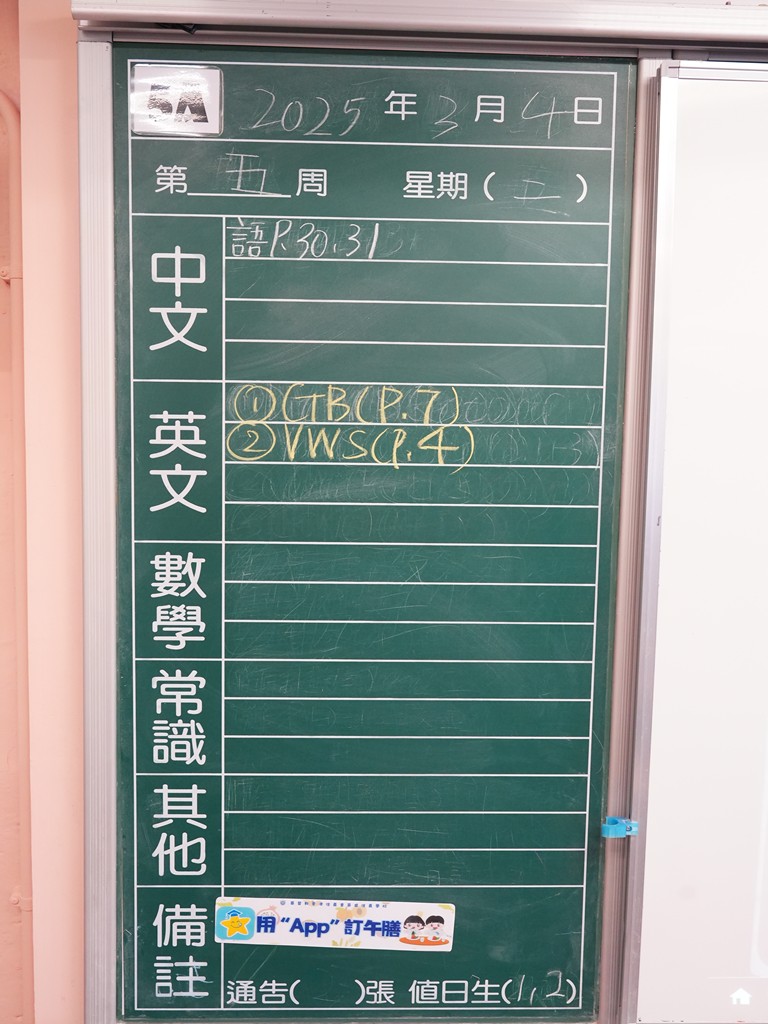 5A 2025年3月4日
第五周 星期(二)
中文
語P.30.31
英文
①GB(P.7)
②VWS(P.4)
數學
常識
其他
備註
用“App”訂午膳
通告( )張 值日生(1,2)